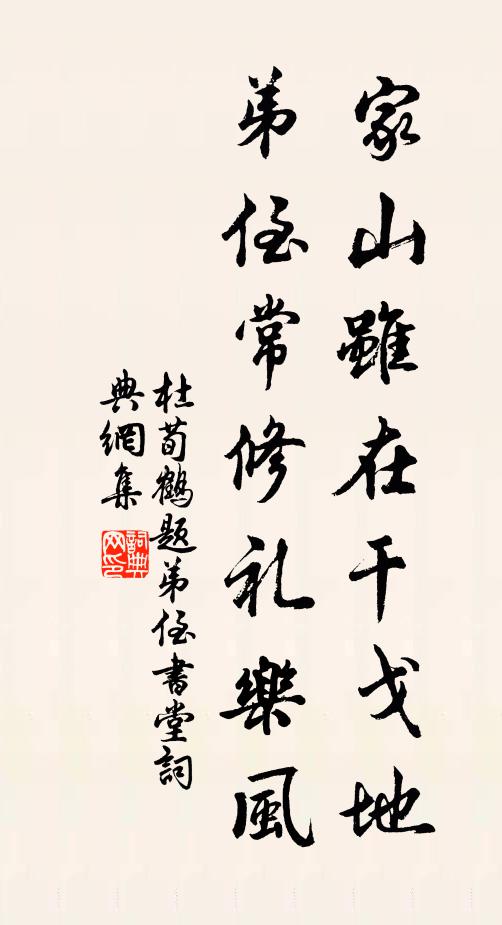 家山雖在干戈地
弟侄常修礼樂風
杜荀鶴題弟侄書堂詞
典網集
詞典
网印